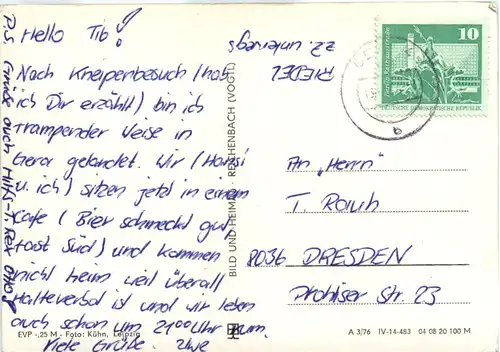 Hello Tib!
Nach Kneipenbesuch (hab
ich Dir erzählt) bin ich
trampender Weise in
Gera gelandet. Wir (Hansi
u. ich) sitzen jetzt in einem
Kafe (Bier schmeckt gut,
fast Süd) und kommen
nicht heim weil überall
Halteverbot ist und wir leben
auch schon um 21 00 Uhr rum.
Viele Grüße. Uwe
P.S. Grüß auch Hilfs-T. Rex Otto!
EVP -,25 M - Foto: Kühn, Leipzig
BILD UND HEIMAT · REICHENBACH (VOGTL)
RIEDEL
zz. unterwegs
10
DEUTSCHE DEMOKRATISCHE REPUBLIK
b
An "Herrn"
T. Rauh
8036 DRESDEN
Prohliser Str. 23
A 3/76 IV-14-483 04 08 20 100 M